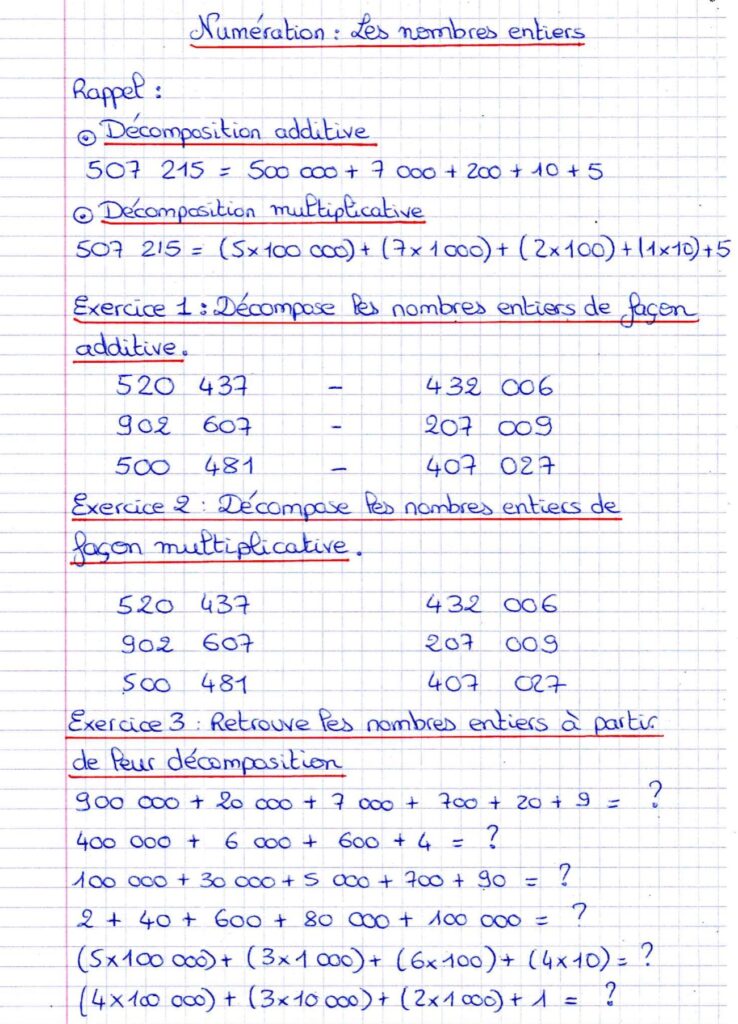 Numération : Les nombres entiers
Rappel :
⊙ Décomposition additive
507 215 = 500 000 + 7 000 + 200 + 10 + 5
⊙ Décomposition multiplicative
507 215 = (5x100 000) + (7x1000) + (2x100) + (1x10)+5
Exercice 1 : Décompose les nombres entiers de façon
additive.
520 437 - 432 006
902 607 - 207 009
500 481 - 407 027
Exercice 2 : Décompose les nombres entiers de
façon multiplicative.
520 437 432 006
902 607 207 009
500 481 407 027
Exercice 3 : Retrouve les nombres entiers à partir
de leur décomposition
900 000 + 20 000 + 7 000 + 700 + 20 + 9 = ?
400 000 + 6 000 + 600 + 4 = ?
100 000 + 30 000 + 5 000 + 700 + 90 = ?
2 + 40 + 600 + 80 000 + 100 000 = ?
(5x100 000) + (3x1 000) + (6x100) + (4x10) = ?
(4x100 000) + (3x10 000) + (2x1 000) + 1 = ?